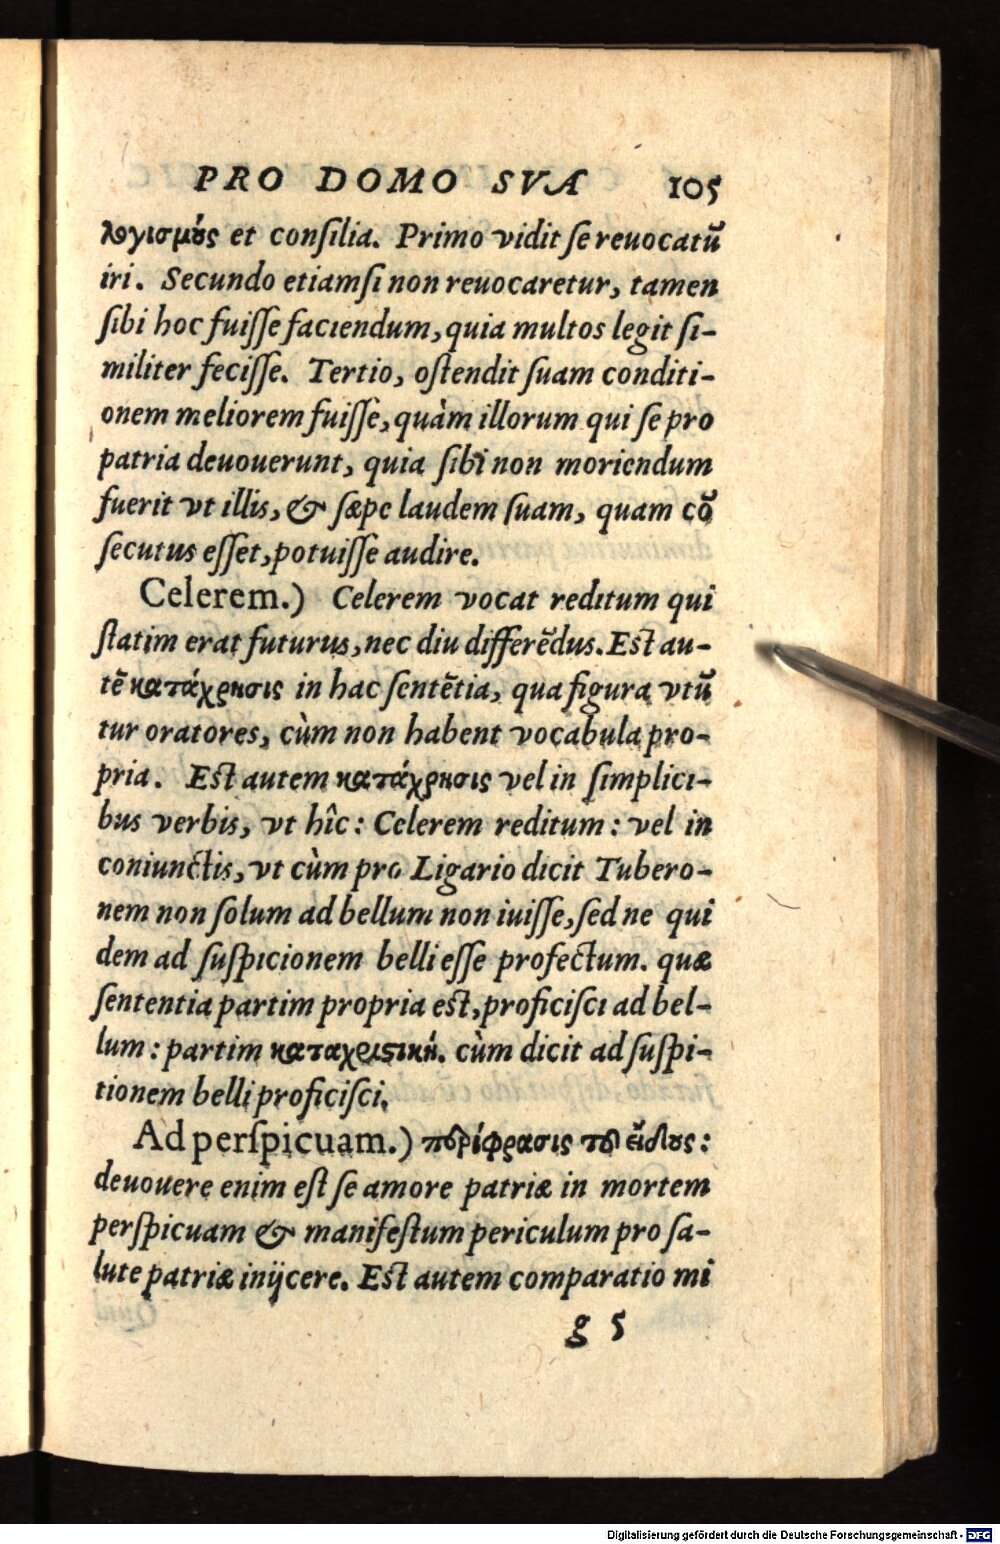 PRO DOMO SVA 105
λογισμοὺς et conſilia. Primo vidit ſe reuocatū
iri. Secundo etiamſi non reuocaretur, tamen
ſibi hoc fuiſſe faciendum, quia multos legit ſi-
militer feciſſe. Tertio, oſtendit ſuam conditi-
onem meliorem fuiſſe, quàm illorum qui ſe pro
patria deuouerunt, quia ſibi non moriendum
fuerit vt illis, & ſæpe laudem ſuam, quam cō
ſecutus eſſet, potuiſſe audire.
Celerem.) Celerem vocat reditum qui
ſtatim erat futurus, nec diu differēdus. Eſt au-
tē κατάχρησις in hac ſentētia, qua figura vtū
tur oratores, cùm non habent vocabula pro-
pria. Eſt autem κατάχρησις vel in ſimplici-
bus verbis, vt hîc: Celerem reditum: vel in
coniunctis, vt cùm pro Ligario dicit Tubero-
nem non ſolum ad bellum non iuiſſe, ſed ne qui
dem ad ſuſpicionem belli eſſe profectum. quæ
ſententia partim propria eſt, proficiſci ad bel-
lum: partim καταχρηστική. cùm dicit ad ſuſpi-
tionem belli proficiſci.
Ad perſpicuam.) περίφρασις τοῦ εἴδους:
deuouere enim eſt ſe amore patriæ in mortem
perſpicuam & manifeſtum periculum pro ſa-
lute patriæ inijcere. Eſt autem comparatio mi
g 5
Digitalisierung gefördert durch die Deutsche Forschungsgemeinschaft - DFG